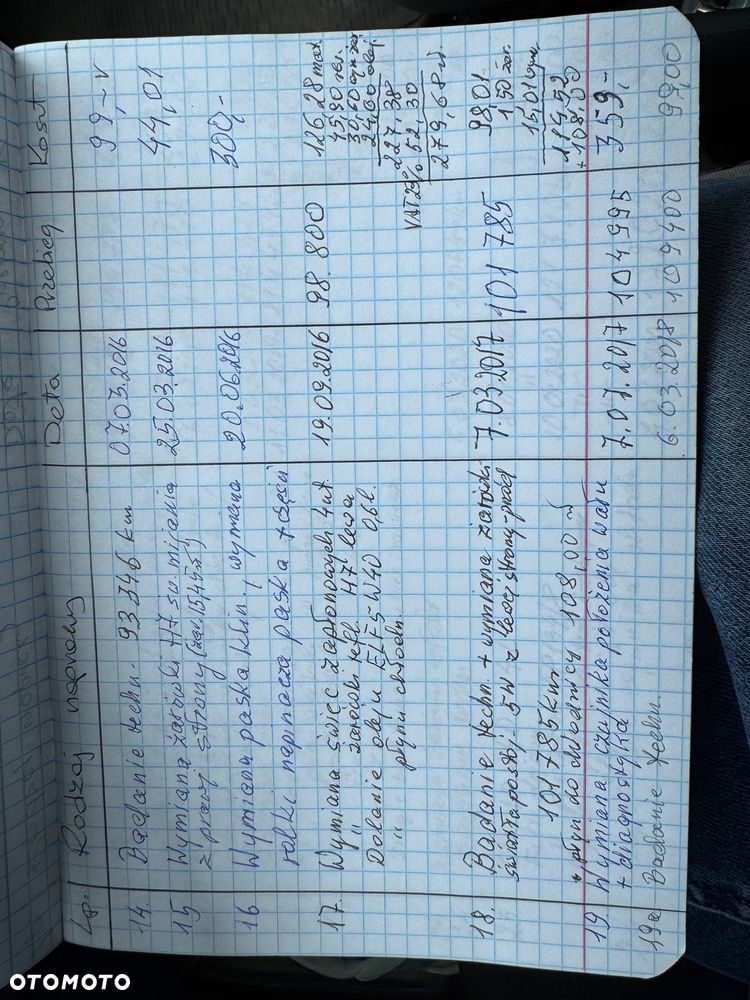 Lp. Rodzaj naprawy Data Przebieg Koszt
14. Badanie techn. 93 346 km 07.03.2016 99,-
15 Wymiana żarówki H7 św. mijania 25.03.2016 44,01
z prawej strony (żar. 15,45 zł)
16 Wymiana paska klin., wymiana 20.06.2016 300,-
rolki napinacza paska + części
17. Wymiana świec zapłonowych 4 szt 19.09.2016 98.800 126,28 mat.
" żarówki refl. H7 lewa 45,90
Dolanie oleju ELF 5W40 0,6l. 30,60
" płynu chłodn. 24,60 olej.
227,38
VAT 23% 52,30
279,68 zł
18. Badanie techn. + wymiana żarówki 7.03.2017 101 785 98,01
światła postoj. 5W z lewej strony-przód 1,50 żar.
101 785 km 15,01
114,52
• płyn do chłodnicy 108,00 zł + 108,00
19. Wymiana czujnika położenia wału 7.07.2017 104 995 359,-
+ diagnostyka
19a Badanie techn. 6.03.2018 109400 99,00
OTOMOTO